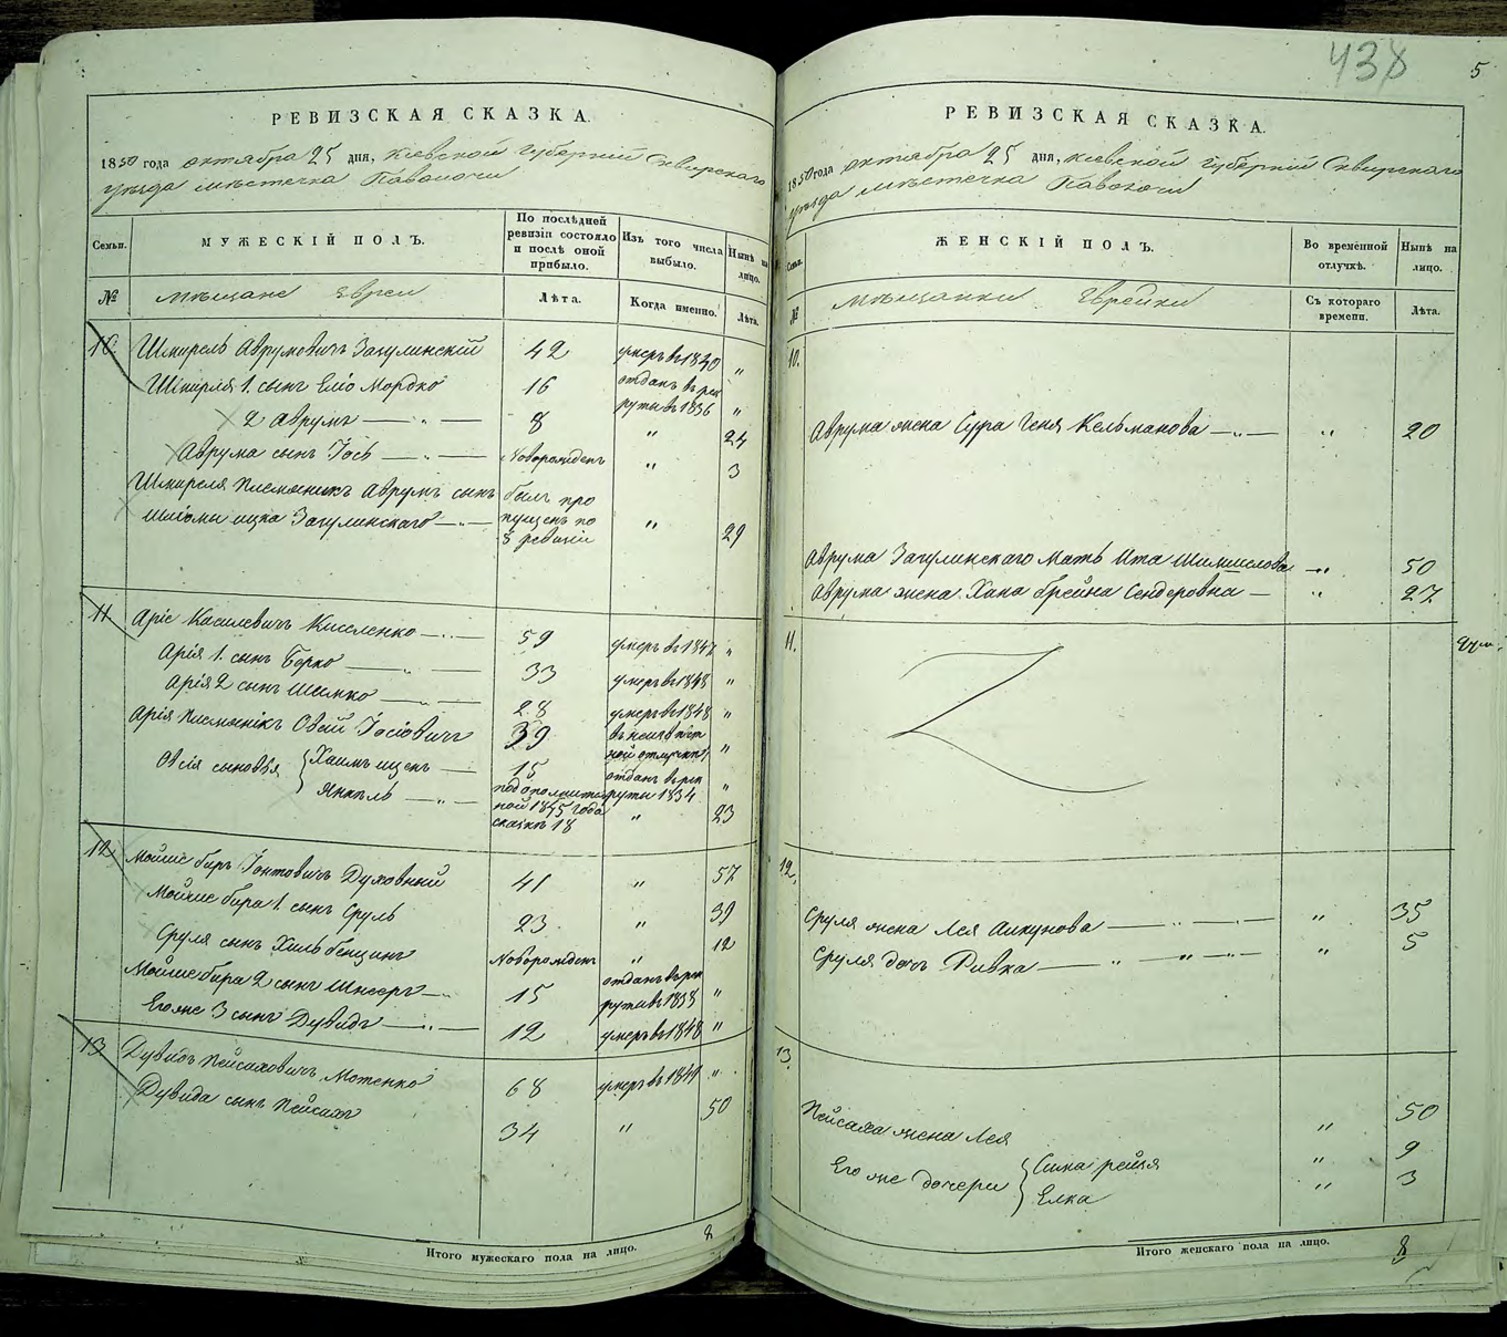 438
5
РЕВИЗСКАЯ СКАЗКА.
1850 года октября 25 дня, Кіевской Губерніи Сквирскаго
уѣзда мѣстечка Паволочи
Семьи.
МУЖЕСКІЙ ПОЛЪ.
По послѣдней ревизіи состояло и послѣ оной прибыло.
Изъ того числа выбыло.
Нынѣ на лицо.
№
мѣщане Евреи
Лѣта.
Когда именно.
Лѣта.
10. Шмирель Аврумовичъ Загулинскій 42 умеръ въ 1840 "
Шмирля 1. сынъ Еліо Мордко 16 отданъ въ рек
руты въ 1836 "
2 Аврумъ — " — 8 " 24
Аврума сынъ Іось — " — Новорожденъ " 3
Шмиреля племяникъ Аврумъ сынъ былъ про
Шліомы ицка Загулинскаго — " — пущенъ по " 29
ревизіи
11 Аріе Касилевичъ Киселенко — " — 59 умеръ въ 1847 "
Арія 1. сынъ Берко — " — 33 умеръ въ 1848 "
Арія 2 сынъ Шимко — " — 28 умеръ въ 1848 "
Арія племянікъ Овсій Іосіовичъ 39 въ неизвѣст
ной отлучкѣ "
Овсія сыновья { Хаимъ ицекъ — 15 отданъ въ рек
руты 1834 "
Янкель — " — по дополнитель
ной 1845 года
сказкѣ 18 " 23
12. Мошко беръ Іонтовичъ Духовный 41 " 57
Мошко бера 1. сынъ Сруль 23 " 39
Сруля сынъ Хиль бенционъ Новорожденъ " 12
Мошко бера 2 сынъ Шнееръ — " 15 отданъ въ рек
руты въ 1838 "
Его же 3 сынъ Дувидъ — " — 12 умеръ въ 1848 "
13 Дувидъ Пейсаховичъ Мотенко 68 умеръ въ 1849 "
Дувида сынъ Пейсахъ 34 " 50
Итого мужескаго пола на лицо. 8
РЕВИЗСКАЯ СКАЗКА.
1850 года октября 25 дня, Кіевской Губерніи Сквирскаго
уѣзда мѣстечка Паволочи
Семьи.
ЖЕНСКІЙ ПОЛЪ.
Во временной отлучкѣ.
Нынѣ на лицо.
№
мѣщанки Еврейки
Съ котораго времени.
Лѣта.
10.
Аврума жена Сура Геня Кельманова — " — " 20
Аврума Загулинскаго Мать Ита Шимшелова — " 50
Аврума жена Хана брейна Сендеровна — " 27
11.
12.
Сруля жена Лея Аицунова — " — " — " 35
Сруля дочь Ривка — " — " — " — " 5
13.
Пейсаха жена Лея " 50
Его же дочери { Сима рейзя " 9
Елка " 3
Итого женскаго пола на лицо. 8